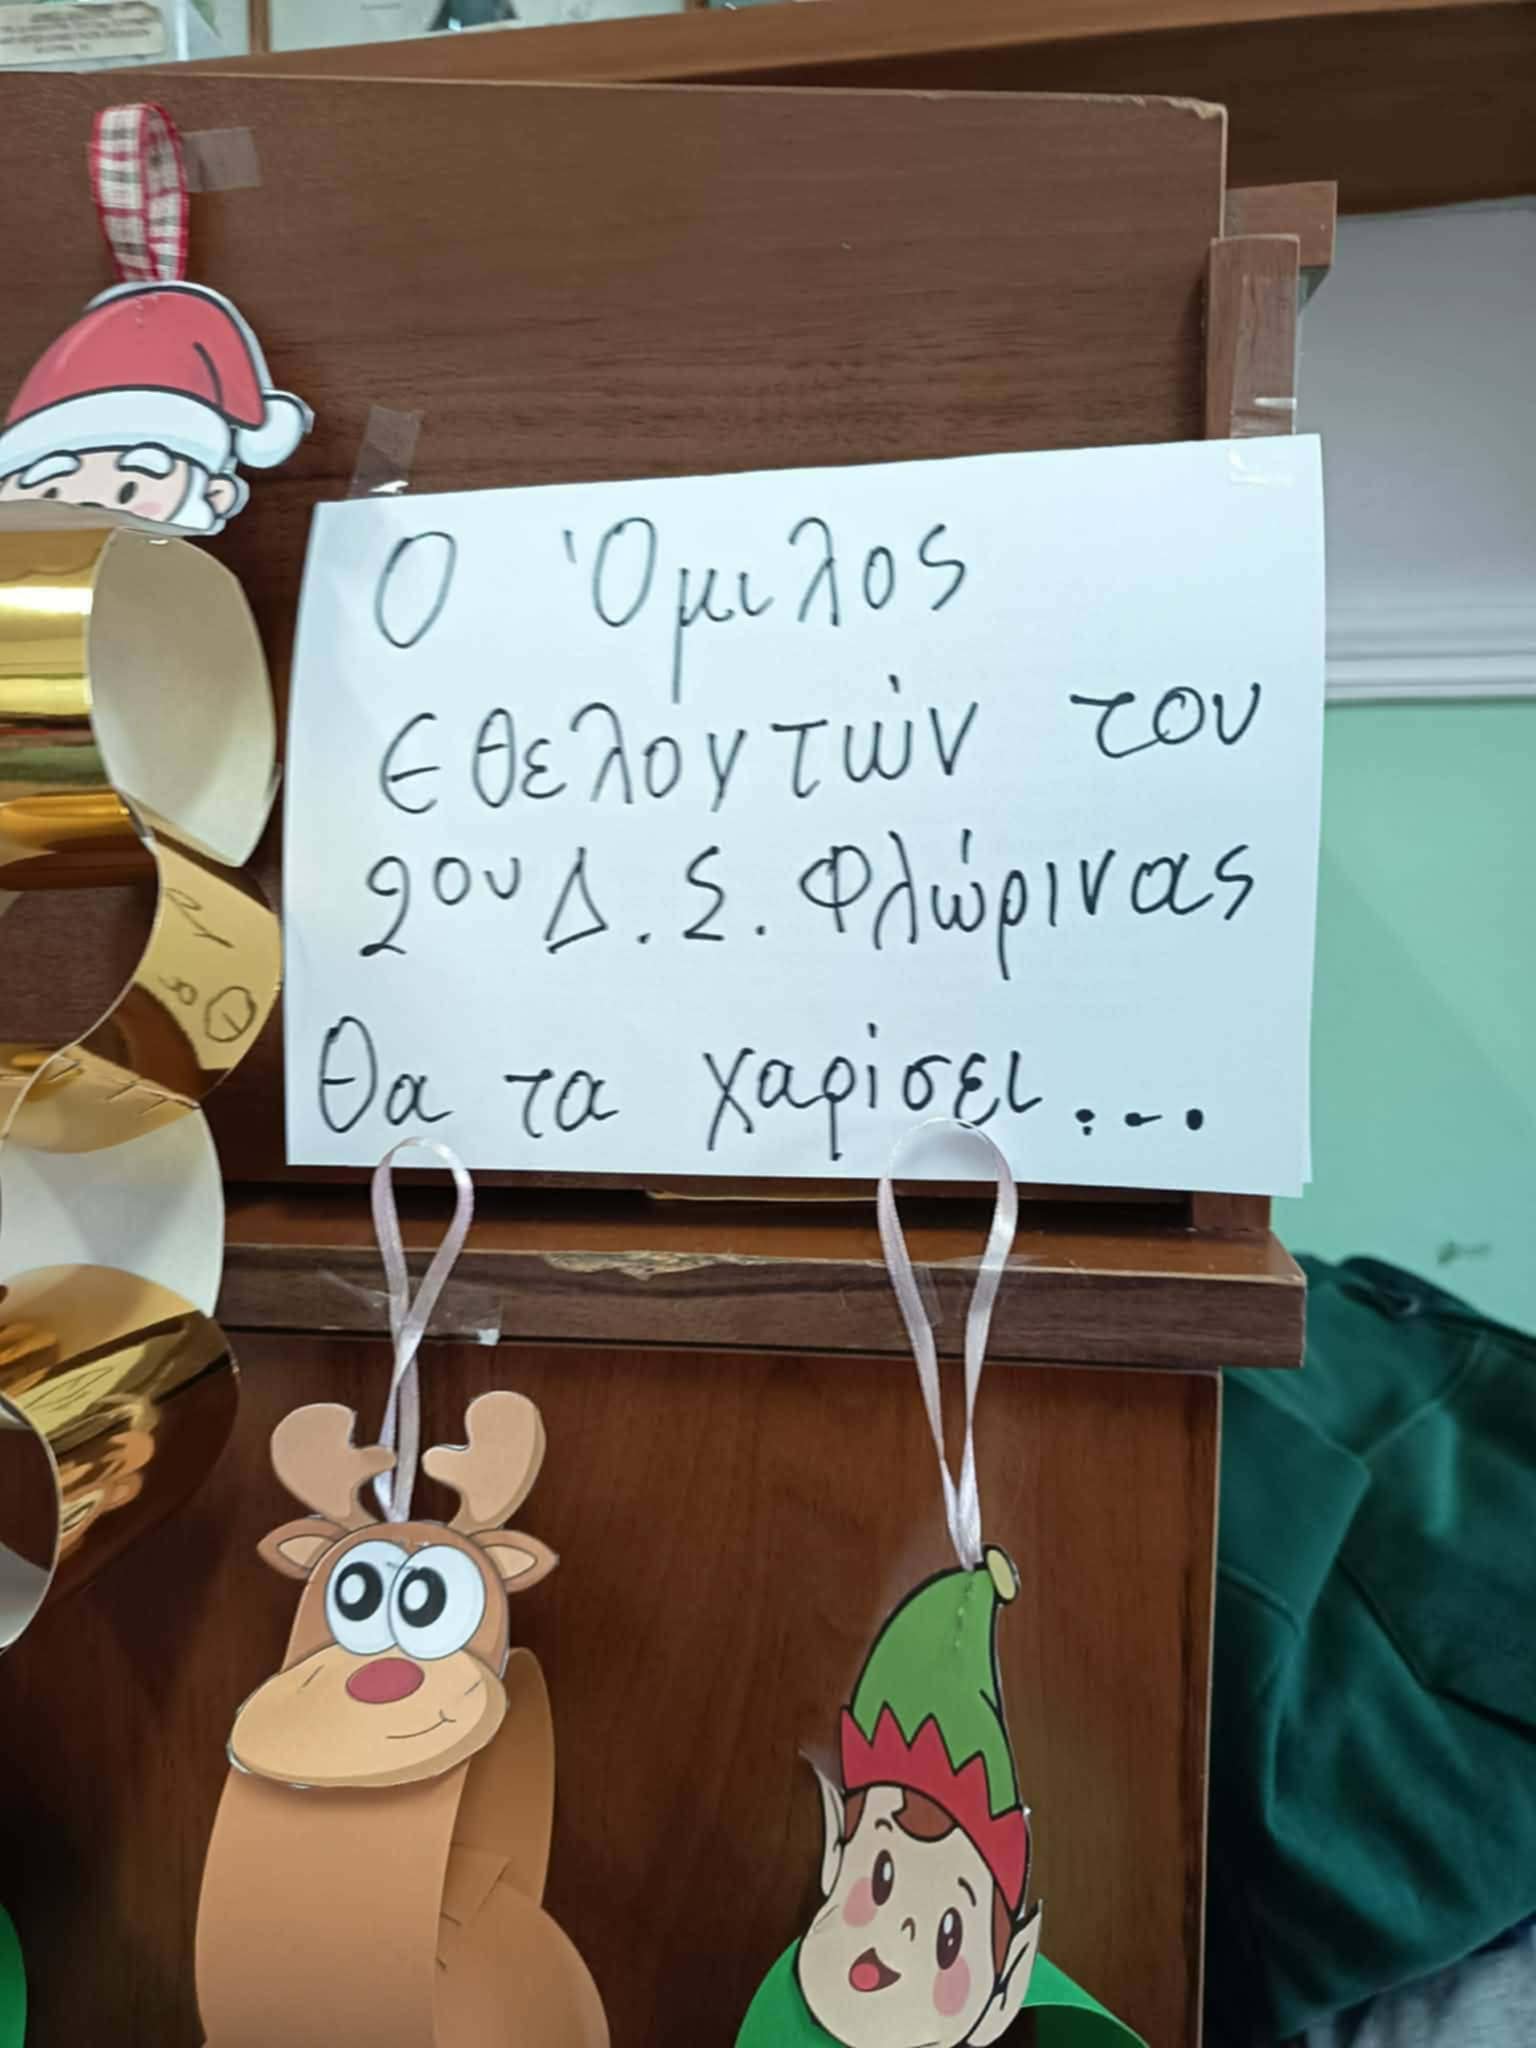 Ο Όμιλος
Εθελοντών του
2ου Δ.Σ. Φλώρινας
Θα τα χαρίσει...